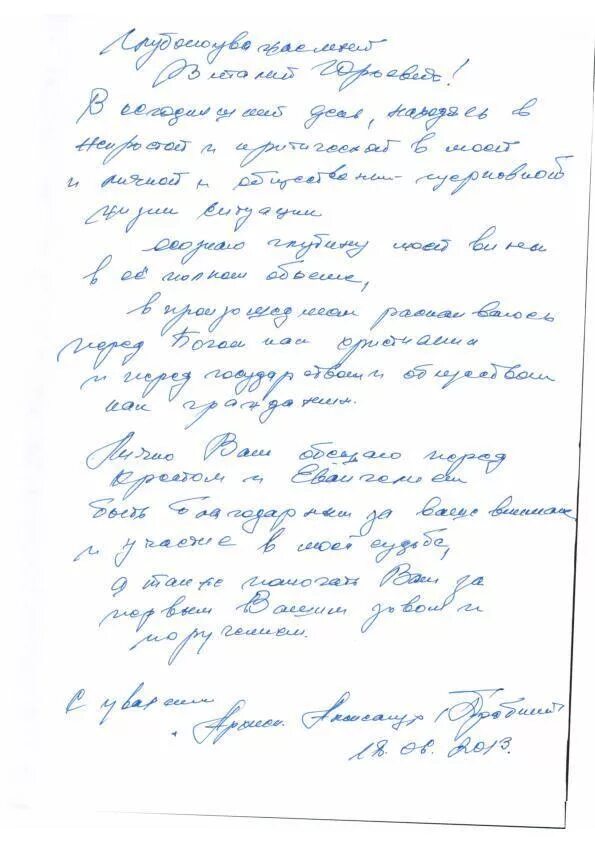 Глубокоуважаемый
Виталий Юрьевич!
В сегодняшний день, находясь в
непростой и критической в моей
и личной и обществен- церковной
жизни ситуации
осознаю глубину моей вины
в её полном объеме,
в произошедшем раскаиваюсь
перед Богом как христианин
и перед государством и обществом
как гражданин.
Лично Вам обещаю перед
Крестом и Евангелием
быть благодарным за ваше внимание
и участие в моей судьбе,
а также помогать Вам за
первым Вашим зовом и
поручением.
С уважением
Александр
18.06.2013.